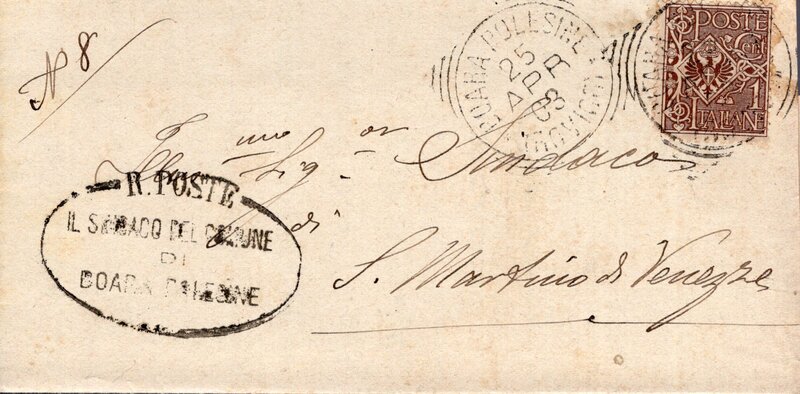 N 8
BOARA POLESINE
25 APR 03
(ROVIGO)
POSTE
Cent
1
ITALIANE
Ill.mo Sig.or Sindaco
R. POSTE
IL SINDACO DEL COMUNE
DI
BOARA POLESINE
di
S. Martino di Venezze